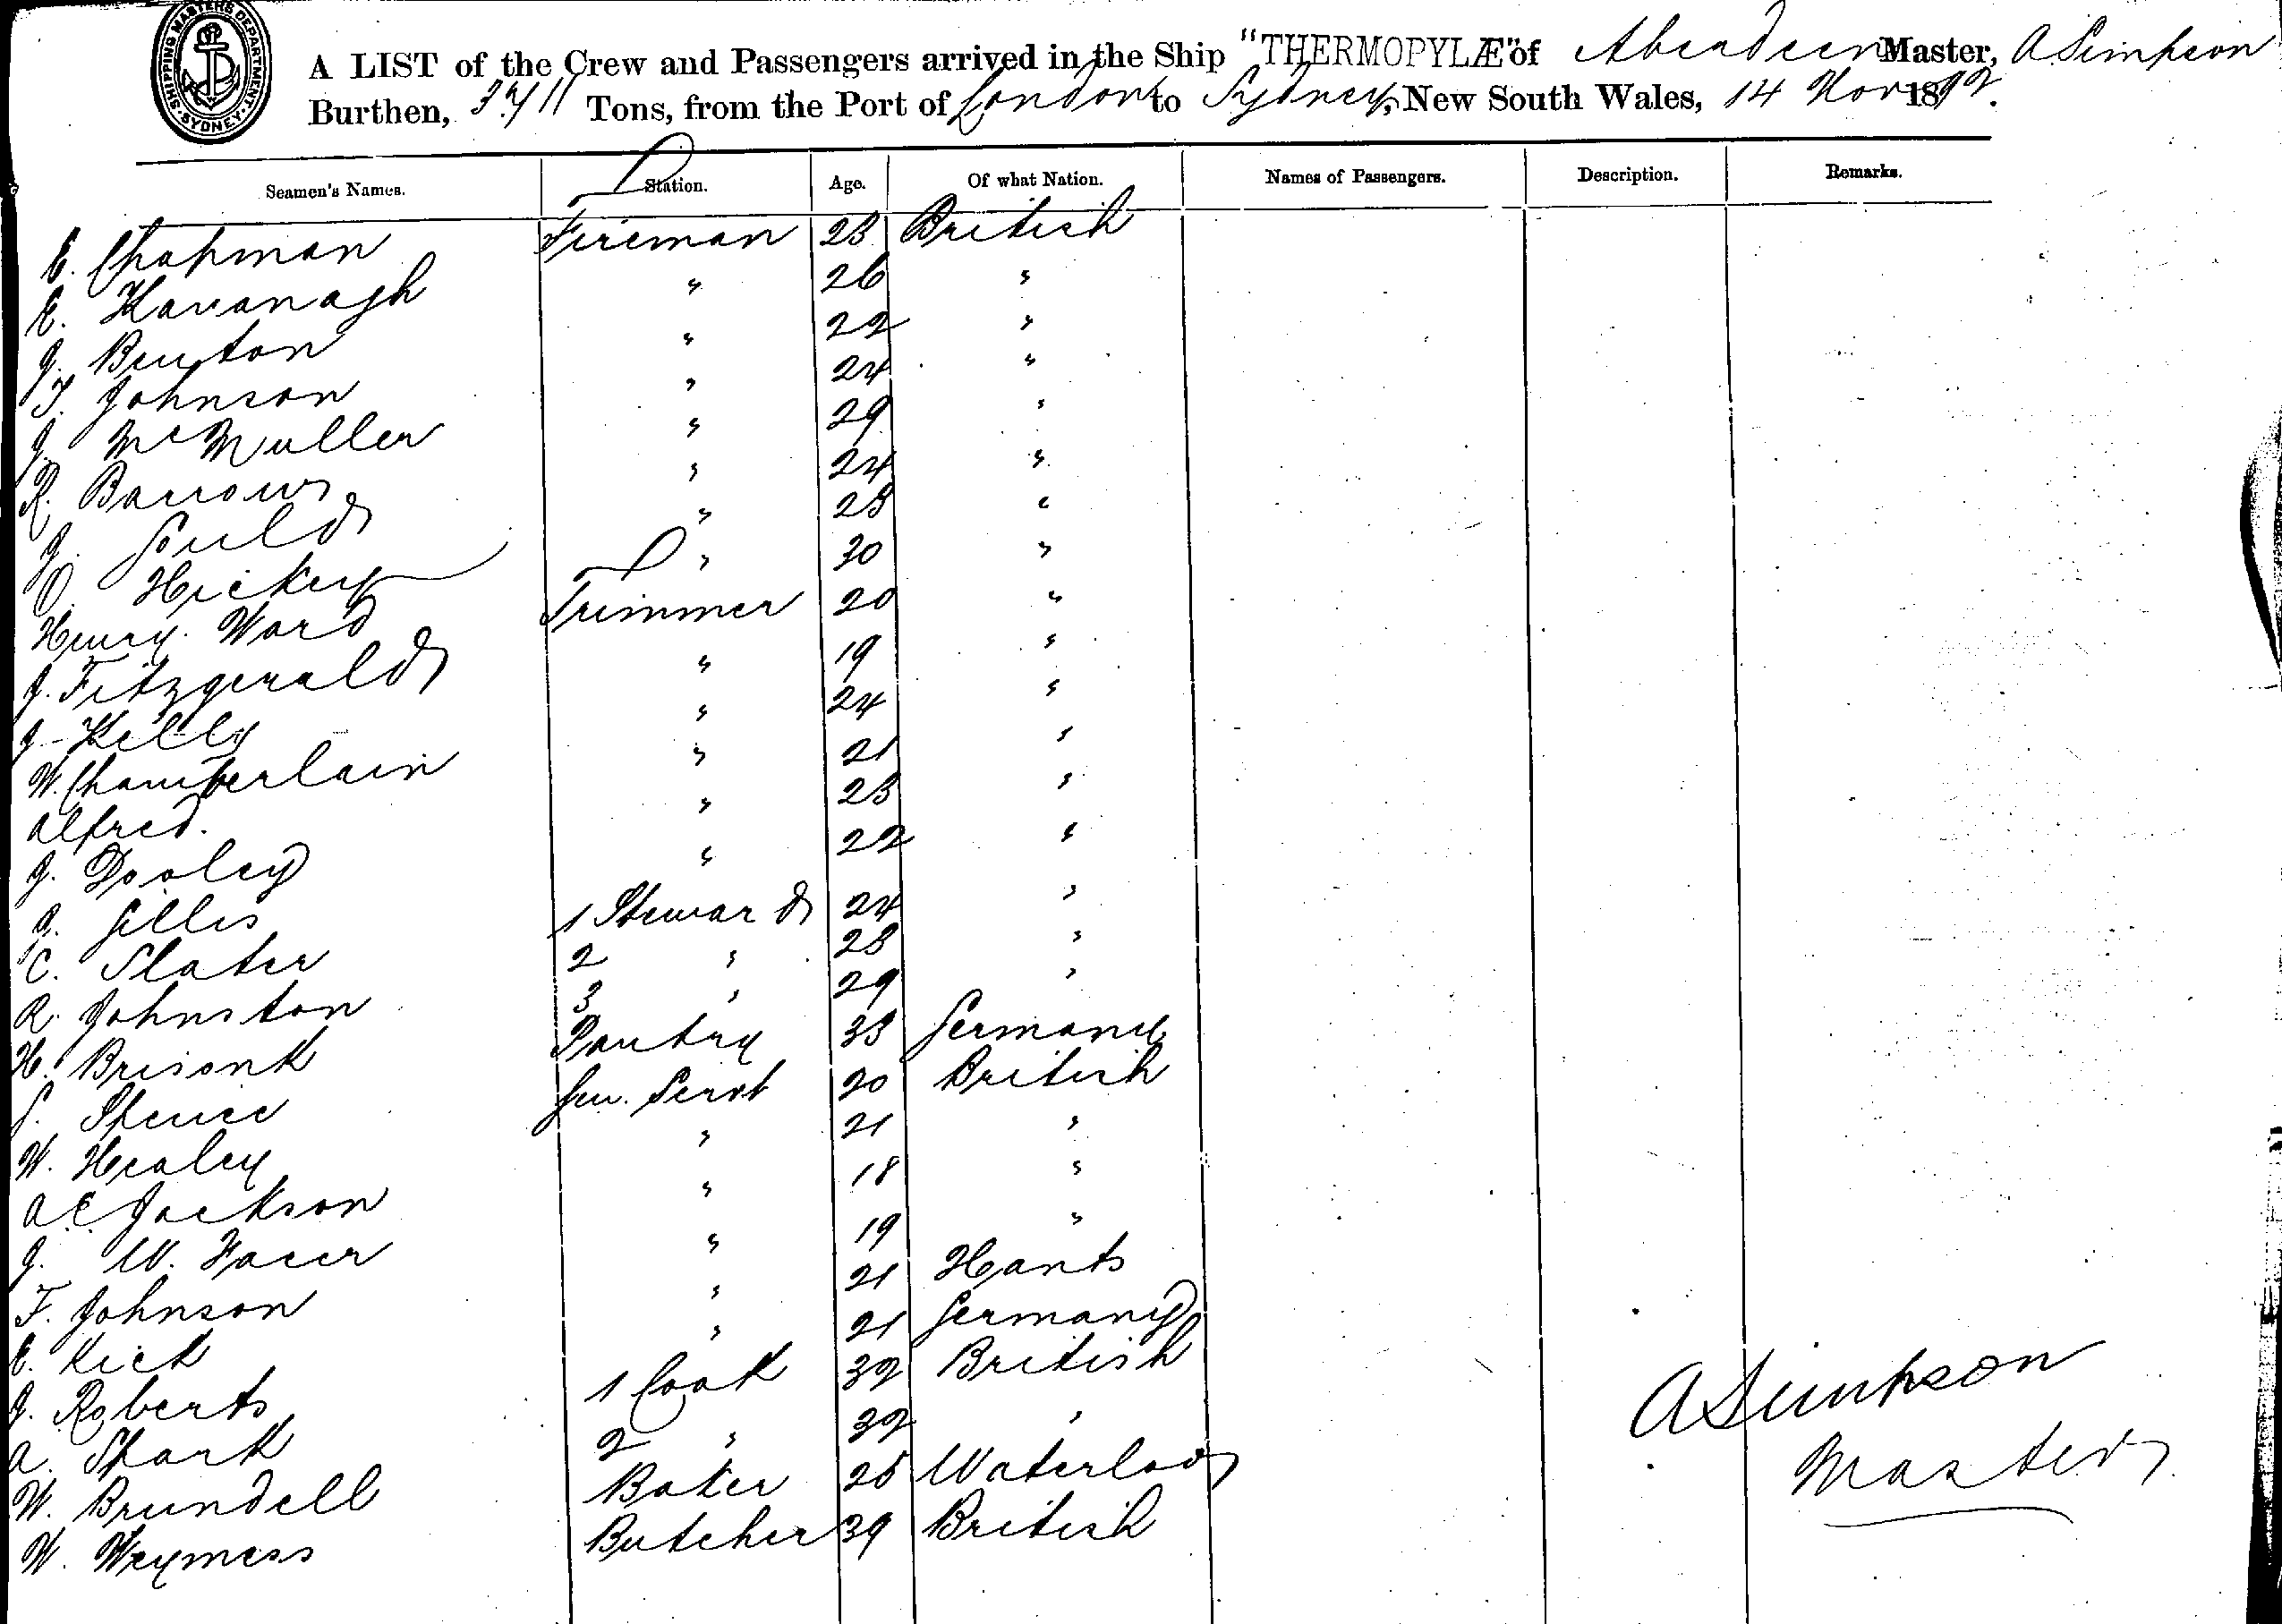 SHIPPING MASTERS DEPARTMENT. SYDNEY.
A LIST of the Crew and Passengers arrived in the Ship "THERMOPYLÆ" of Aberdeen Master, A Simpson
Burthen, 3711 Tons, from the Port of London to Sydney, New South Wales, 14 Nov 1892.
Seamen's Names. Station. Age. Of what Nation. Names of Passengers. Description. Remarks.
E. Chapman Fireman 23 British
E. Kavanagh " 26 "
J. Benton " 22 "
T. Johnson " 24 "
J. McMullen " 29 "
R. Barrows " 24 "
J. Gould " 23 "
O. Hickey " 30 "
Henry Ward Trimmer 20 "
J. Fitzgerald " 19 "
J. Kelly " 24 "
W. Chamberlain " 21 "
Alfred. " 23 "
J. Dooley " 22 "
A. Gillis 1 Steward 24 "
C. Slater 2 " 23 "
R. Johnston 3 " 29 "
H. Brisonk Pantry 33 Germany
S. Spence Gen. Servt 20 British
W. Healey " 21 "
A E Jackson " 18 "
J. W. Facer " 19 "
F. Johnson " 21 Hants
E. Kick " 21 Germany
J. Roberts 1 Cook 32 British
A. Spark 2 " 32 "
W. Brundell Baker 25 Waterloo
W. Weymess Butcher 39 British
A Simpson
Master